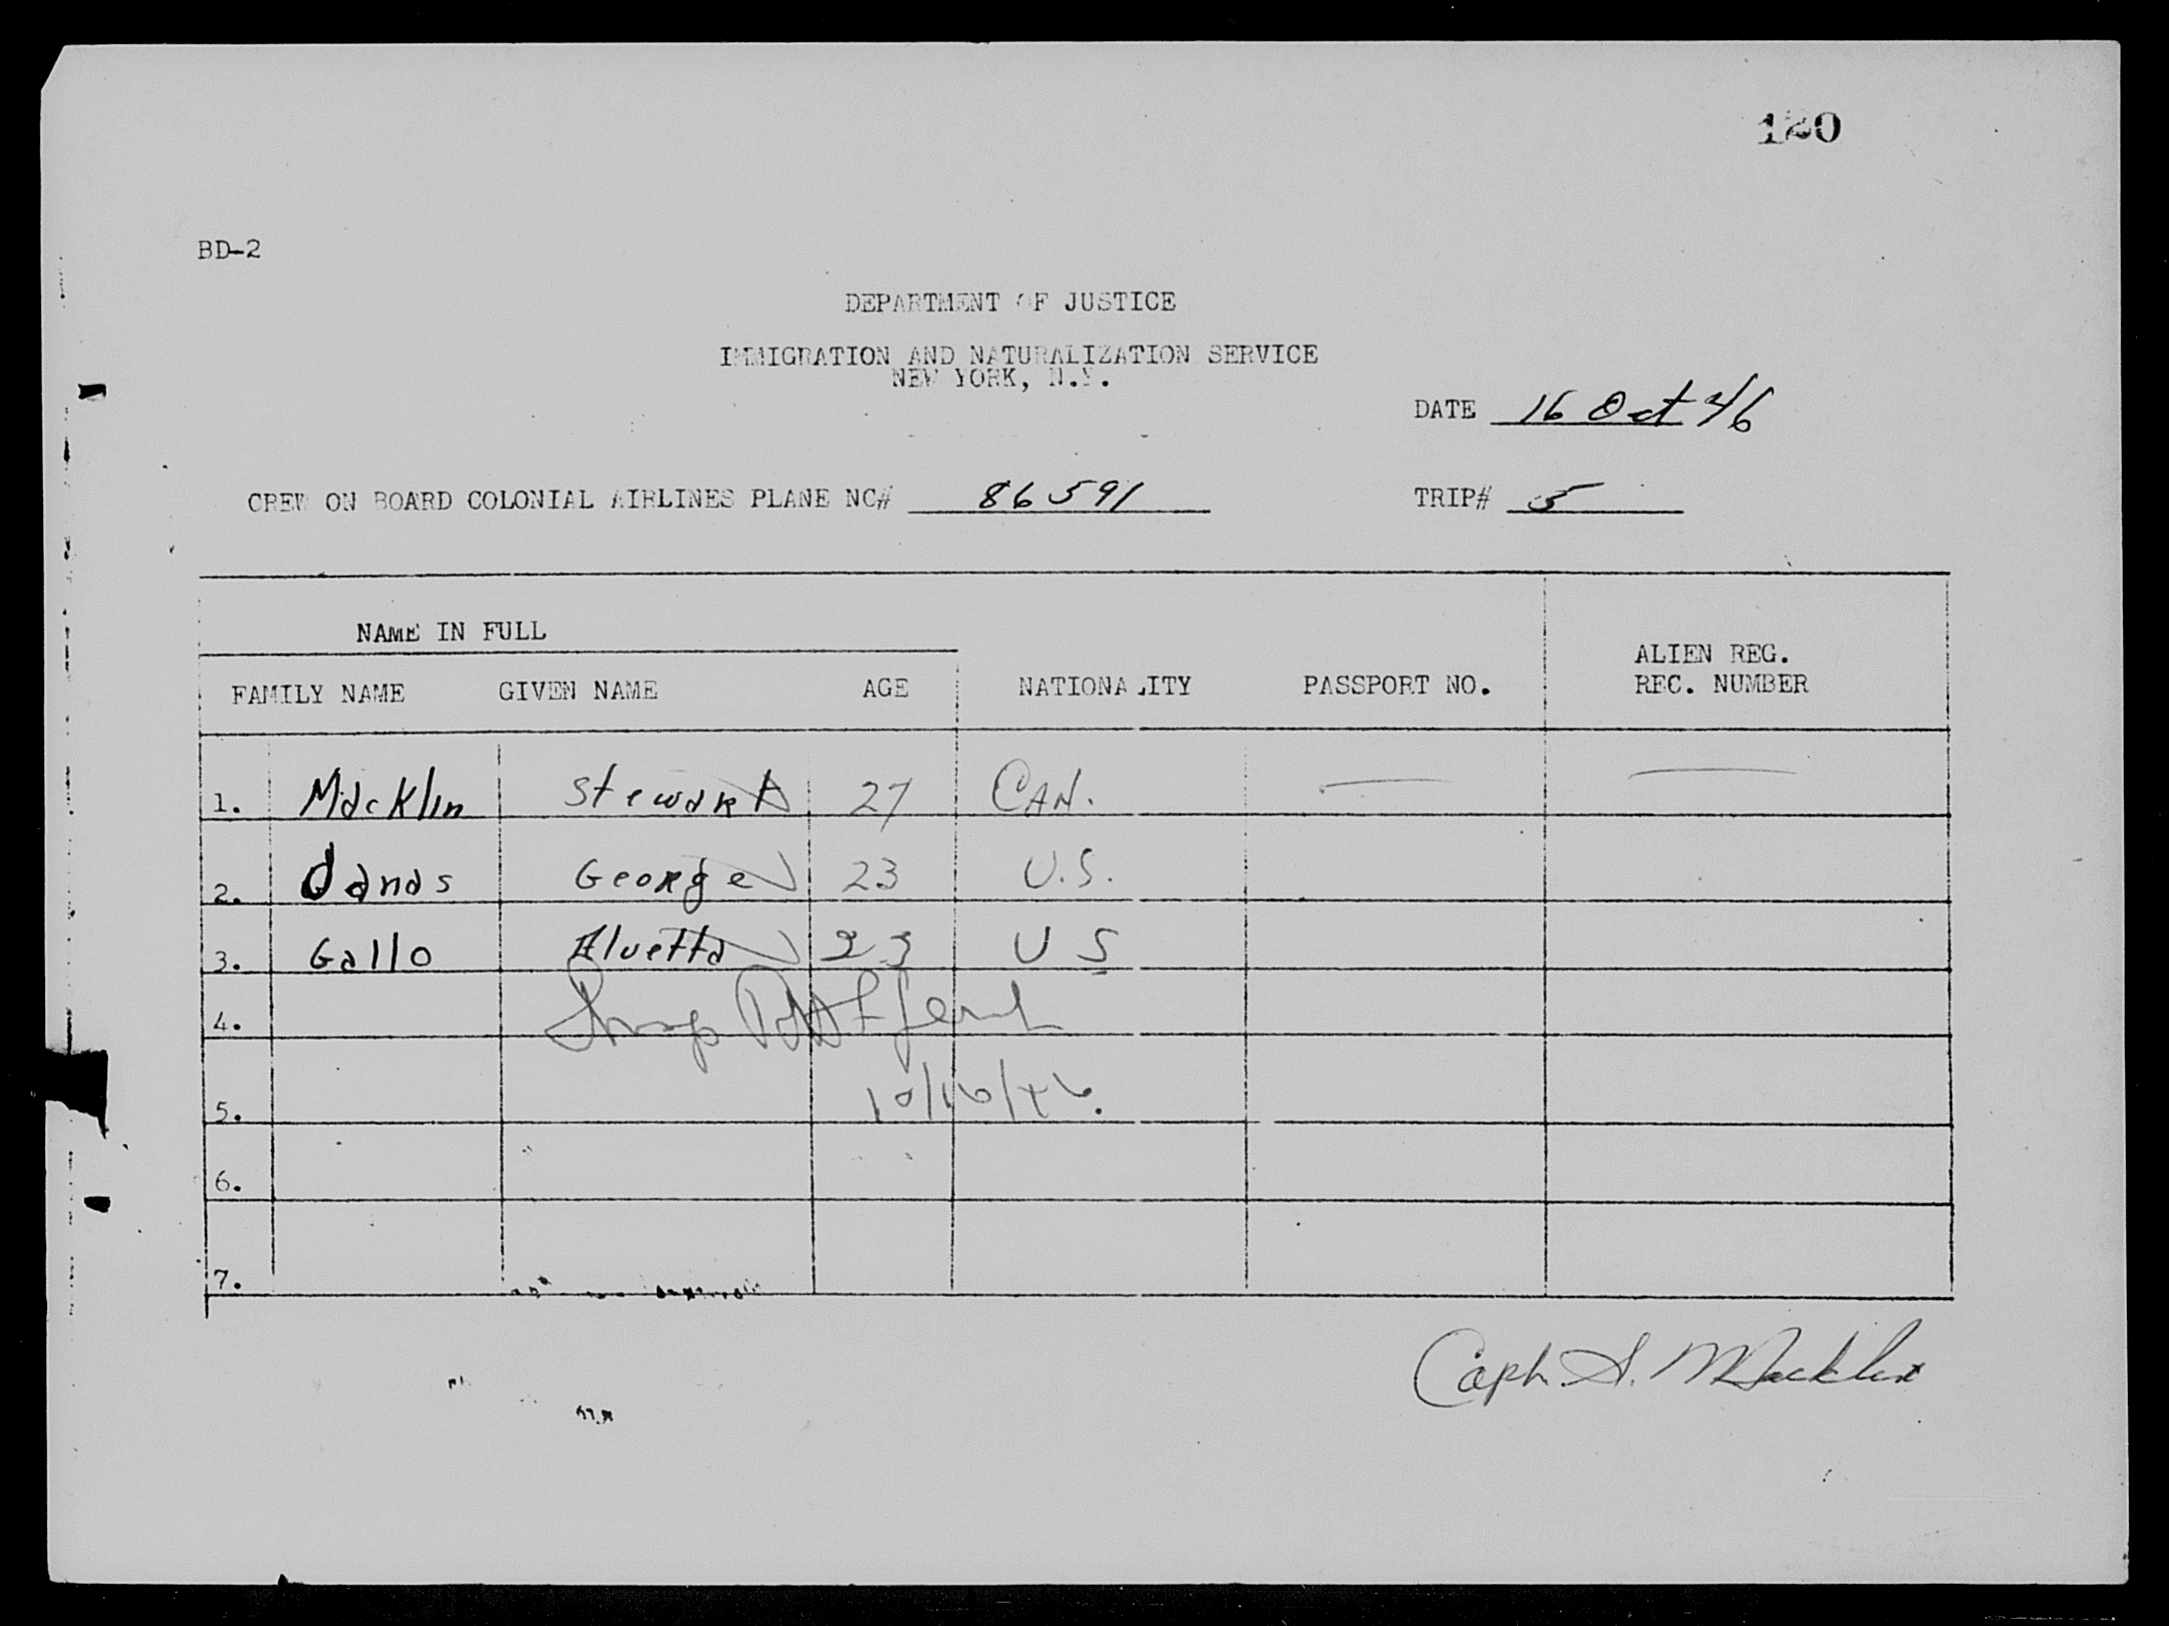 120
BD-2
DEPARTMENT OF JUSTICE
IMMIGRATION AND NATURALIZATION SERVICE
NEW YORK, N.Y.
DATE 16 Oct 46
CREW ON BOARD COLONIAL AIRLINES PLANE NC# 86591 TRIP# 5
NAME IN FULL
FAMILY NAME GIVEN NAME AGE NATIONALITY PASSPORT NO. ALIEN REG. REC. NUMBER
1. Macklin Stewart 27 CAN. — —
2. Janas George 23 U.S.
3. Gallo Alvetta 23 U S
4. Insp
10/16/46.
5.
6.
7.
Capt. S. Macklin